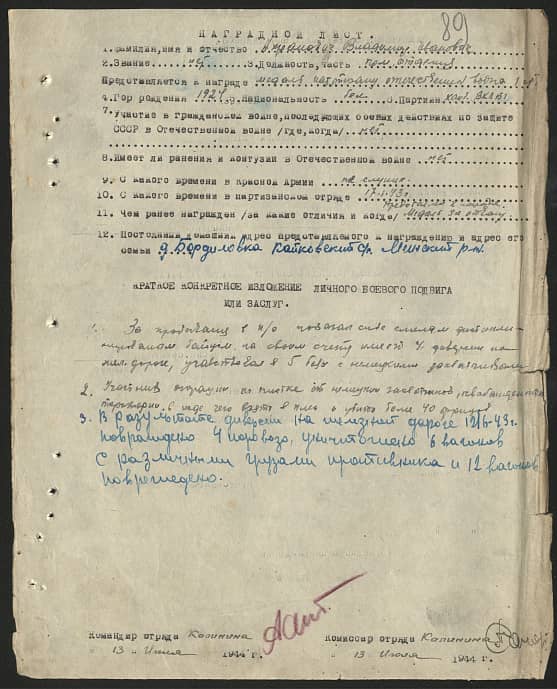 89
НАГРАДНОЙ ЛИСТ.
1. Фамилия, имя и отчество Владимир Иванович
2. Звание нет 3. Должность, часть пом. отделен.
Представляется к награде медаль партизану отечествен война
4. Год рождения 1924 5. Национальность бел 6. Партийн канд ВКП(б)
7. Участие в гражданской войне, последующих боевых действиях по защите
СССР в Отечественной войне /где, когда/ нет
8. Имеет ли ранения и контузии в Отечественной войне нет
9. С какого времени в Красной Армии не служил
10. С какого времени в партизанском отряде 17-1-43г.
11. Чем ранее награжден /за какие отличия и когда/ Медаль За отвагу
12. Постоянный домашний адрес представляемого к награждению и адрес его
семьи д. Бардиловка Минский р-н.
КРАТКОЕ КОНКРЕТНОЕ ИЗЛОЖЕНИЕ ЛИЧНОГО БОЕВОГО ПОДВИГА
ИЛИ ЗАСЛУГ.
1. За пребывание в п/о показал себя смелым дисципли-
нированом бойцом, на своем счету имеет 4 диверсии на
жел. дороге, учавствовал в 5 боях с немецкими захватчиками
2. Участник операции по немецких захватчиков,
в ходе чего взято в плен и убито более 40 фрицов
3. В разультате диверсии на железной дороге 12/6-43г.
поврждено 4 паровоза, уничтожено 6 вагонов
с различными грузами противника и 12 вагонов
повреждено.
Командир отряда Калинина Комиссар отряда Калинина
" 13 " Июля 1944 г. " 13 " Июля 1944 г.